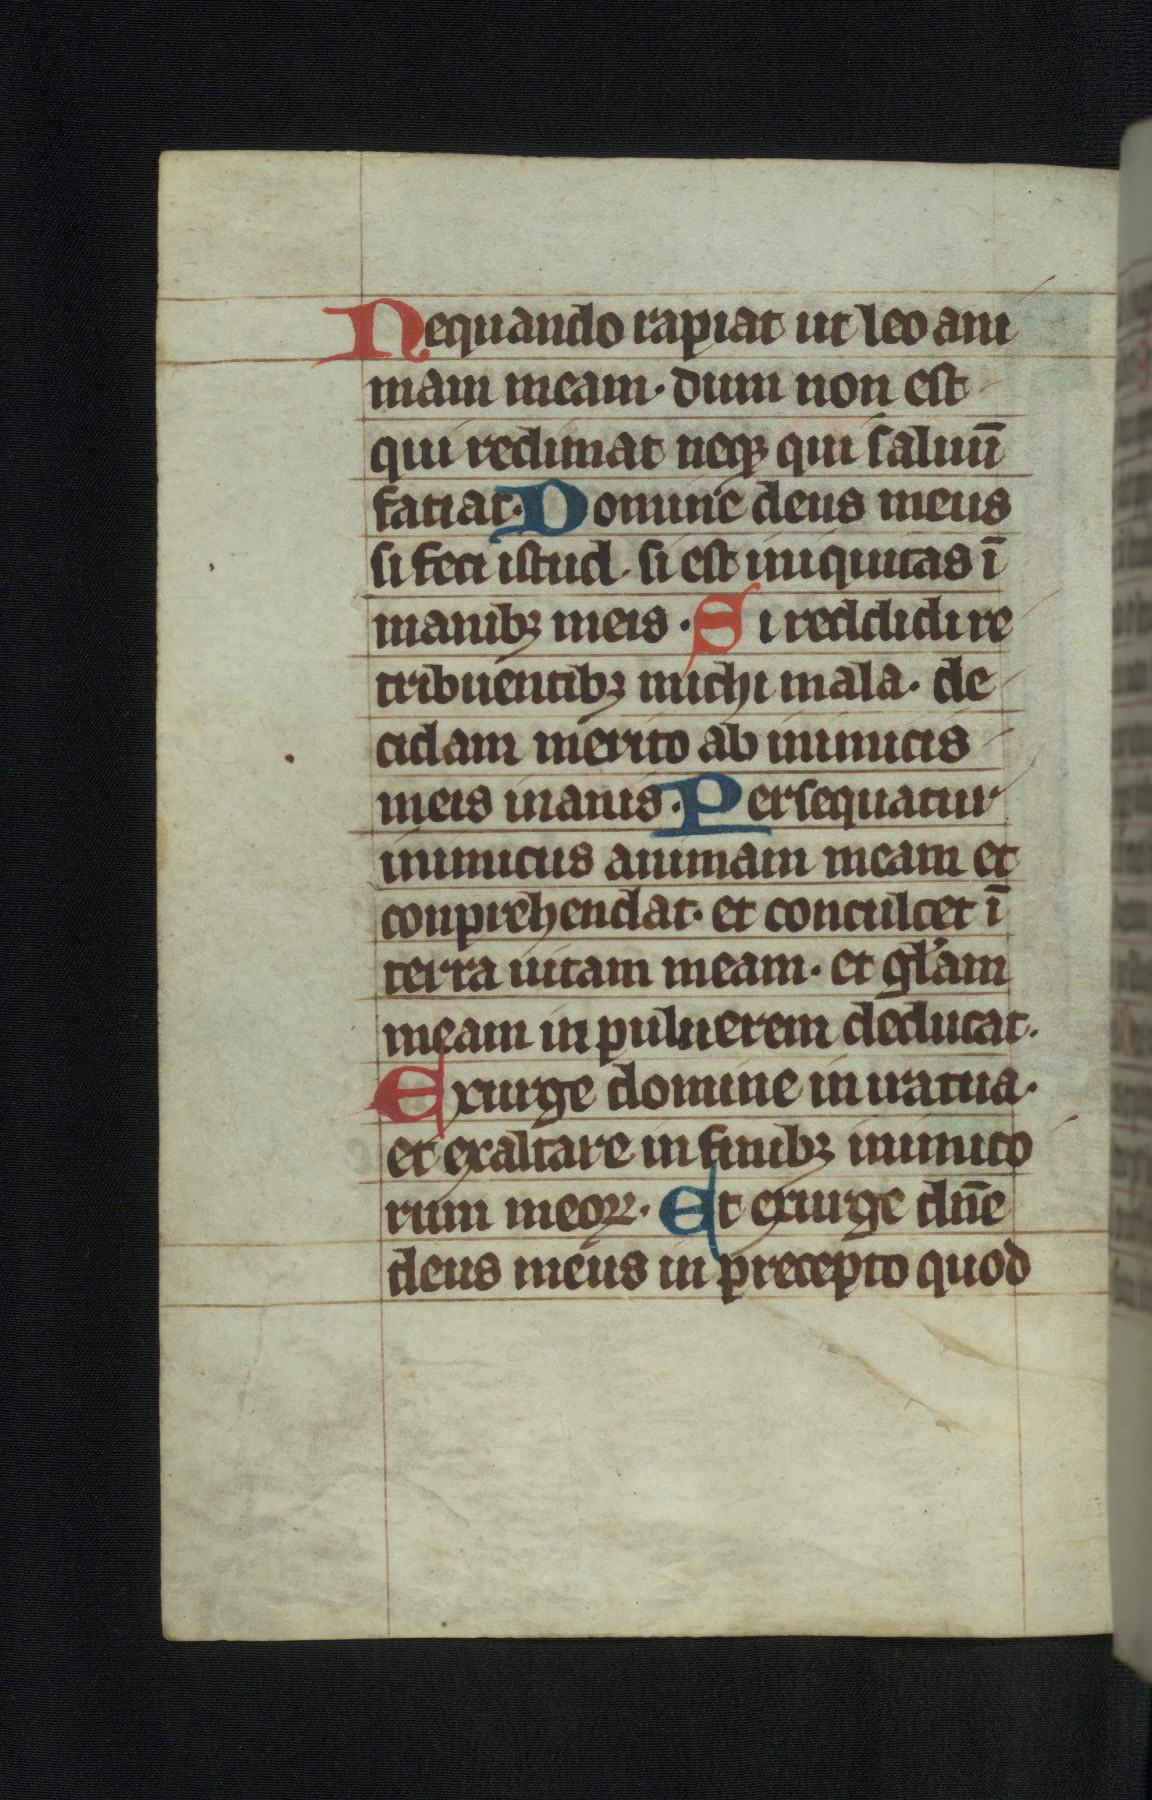 Nequando rapiat ut leo ani
mam meam · dum non est
qui redimat neqꝫ qui saluū
faciat · Domine deus meus
si feci istud · si est iniquitas ī
manibꝫ meis · Si reddidi re
tribuentibꝫ michi mala · de
cidam merito ab inimicis
meis inanis · Persequatur
inimicus animam meam et
conprehendat · et conculcet ī
terra uitam meam · et gl'am
meam in puluerem deducat ·
Exurge domine in ira tua ·
et exaltare in finibꝫ inimico
rum meoꝝ · Et exurge dn̄e
deus meus in precepto quod